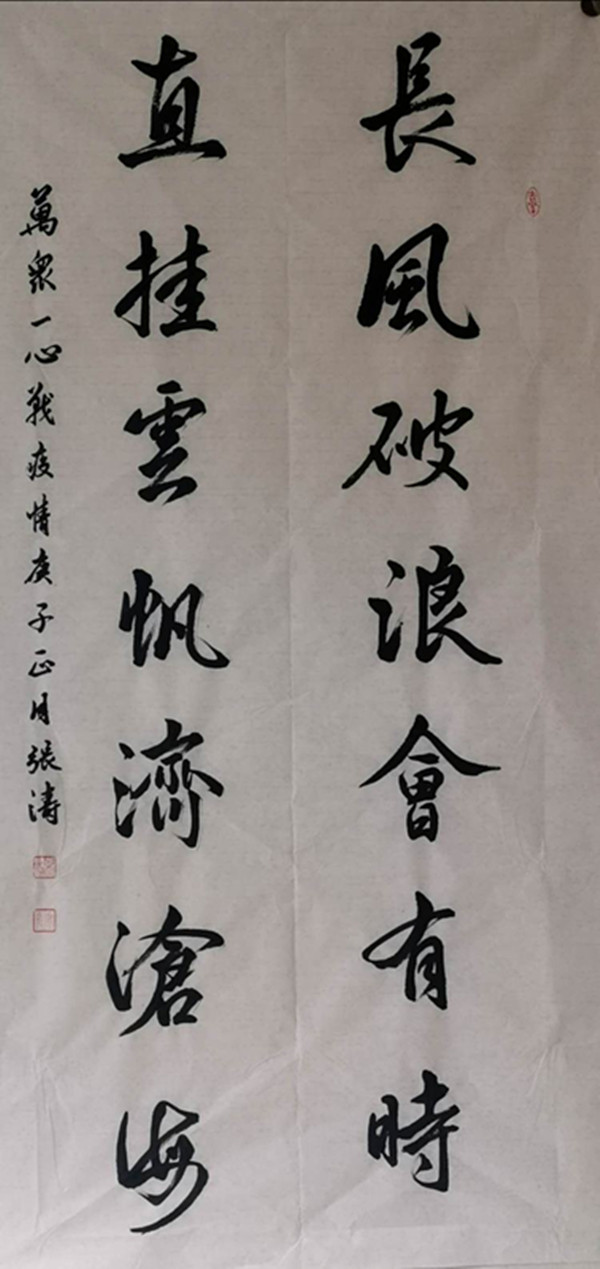 長風破浪會有時
直挂雲帆濟滄海
萬衆一心戰疫情庚子正月張濤